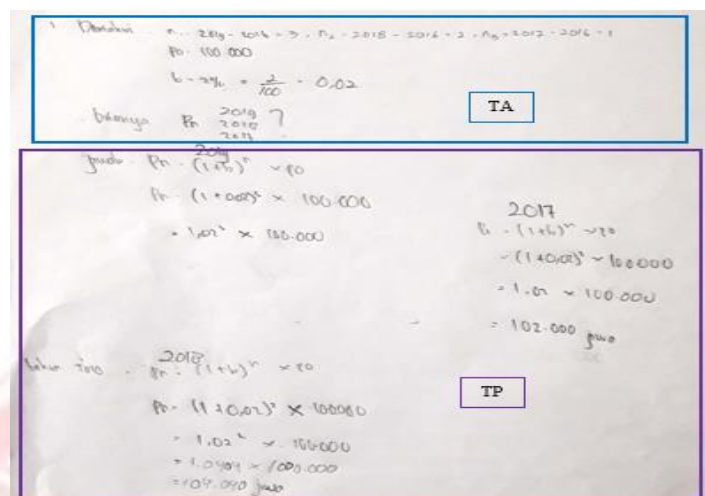 1. Diketahui n₁ = 2019 - 2016 = 3, n₂ = 2018 - 2016 = 2, n₃ = 2017 - 2016 = 1
Po = 100.000
b = 2% = 2/100 = 0,02
TA
Ditanya Pn 2019 ?
2018
2017
2019
Pn = (1+b)ⁿ × Po
Pn = (1+0,02)³ × 100.000
= 1,02³ × 100.000
2017
Pn = (1+b)ⁿ × Po
= (1+0,02)¹ × 100000
= 1.02 × 100.000
= 102.000 jiwa
2018
Pn = (1+b)ⁿ × Po
TP
Pn = (1+0,02)² × 100000
= 1,02² × 100.000
= 1.0404 × 1000.000
= 104.040 jiwa